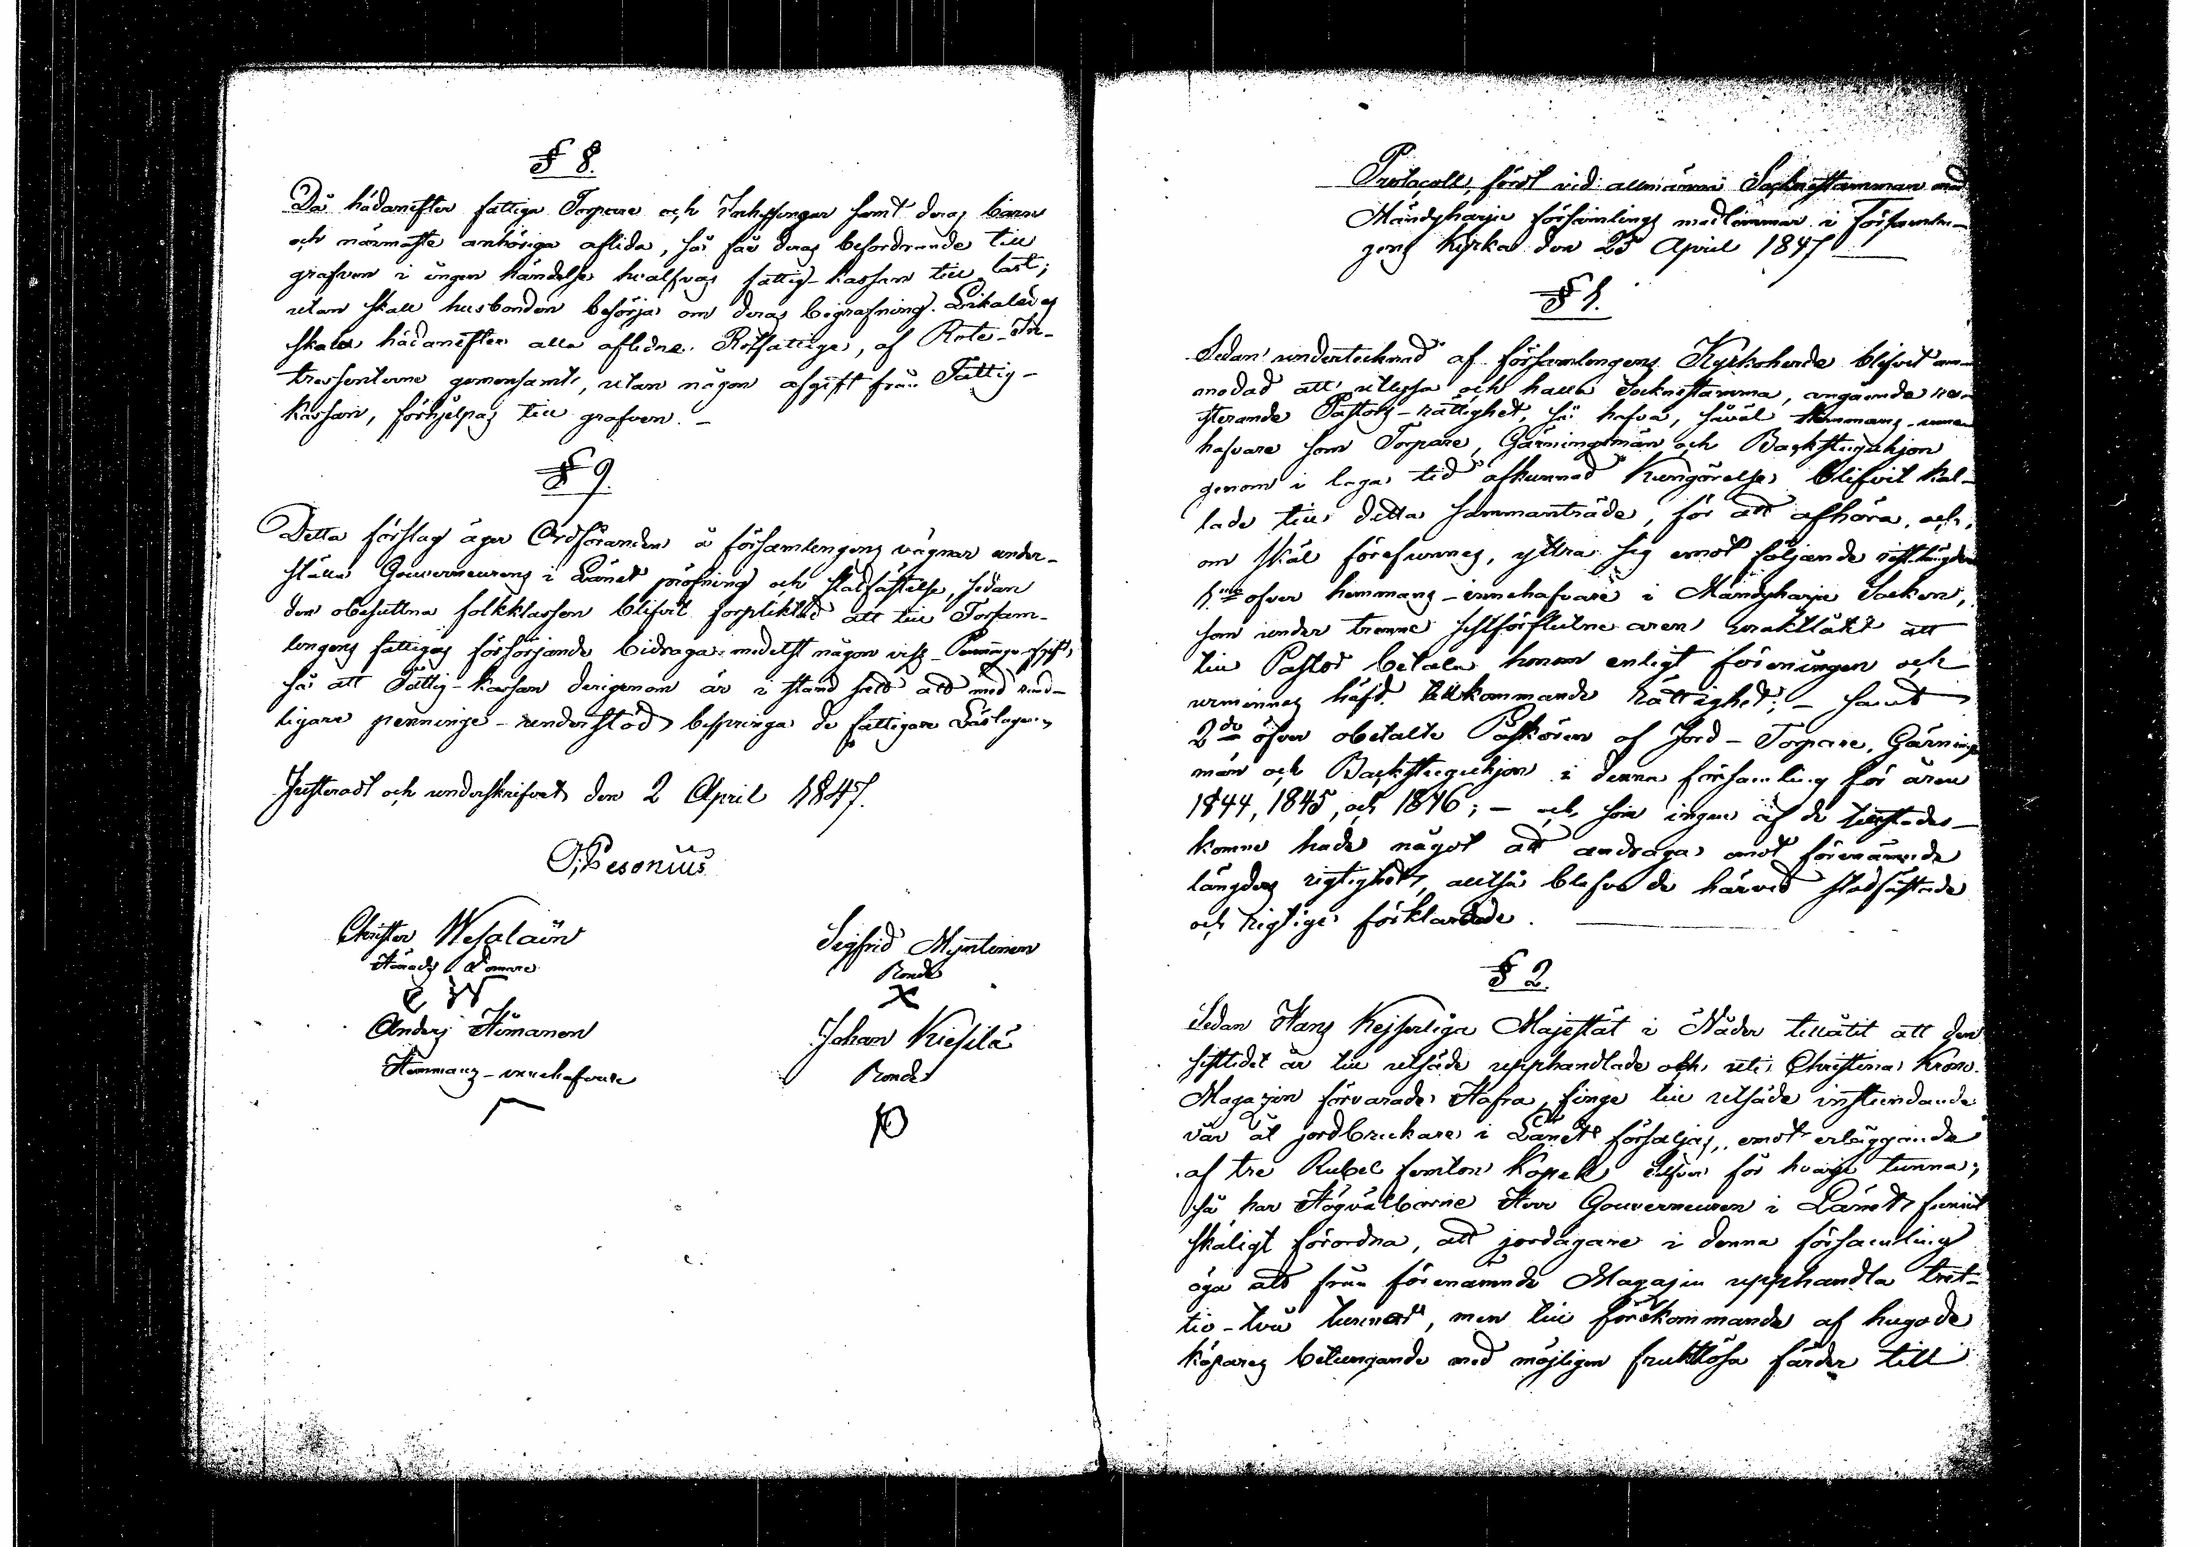 § 8.
Då hädanefter fattiga Torpare och Inhysingar samt deras barn
och närmaste anhöriga aflida, så får deras befordrande till
grafven i ingen händelse hvälfvas fattig-kassan till last;
utan skall husbonden besörja om deras begrafning. Likaledes
skola hädanefter alla aflidne Rotfattige, af Rote-In-
tressenterne gemensamt, utan någon afgift från Fattig-
kassan, förhjelpas till grafven. –
§ 9.
Detta förslag äger Ordföranden å församlingens vägnar under-
ställa Gouverneurens i Länet pröfning och stadfästelse, sedan
den obesuttna folkklassen blifvit förpliktad att till Försam-
lingens fattigas försörjande bidraga medelst någon viss Pennings-afgift,
så att Fattig-kassan derigenom är i stånd satt att med
ligare penninge-understöd bespringa de fattigare
Justeradt och underskrifvet den 2 April 1847.
O. Pesonius
Christer Wesalain
Härads Domare
C W
Anders Himanen
Hemmans-innehafvare
Sigfrid Myntinen
Bonde
X
Johan Kiesilä
Bonde
Protocoll, fördt vid allmänna Sockenstämman med
Mändyharju församlings medlemmar i Församlin-
gens kyrka den 25 April 1847
§ 1.
Sedan undertecknad af församlingens Kyrkoherde blifvit an-
modad att utlysa och hålla Sockenstämma, angående re-
sterande Pastors-rättighet, så hafva, såväl Hemmans-inne-
hafvare som Torpare, Gärningsmän och Backstuguhjon
genom i laga tid afkunnad Kungörelse blifvit kal-
lade till detta sammanträde, för att afhöra, och,
om skäl förefunnes, yttra sig emot följande restlängder
1:mo öfver hemmans-innehafvare i Mändyharju Socken,
som under trenne sistförflutne åren uraktlåtit att
till Pastor betala honom enligt föreningen och
urminnes häfd tillkommande rättighet; – samt
2:do öfver obetalte Påskören af Jord-Torpare, Gärnings
män och Backstuguhjon i denna församling för åren
1844, 1845, och 1846; – och som ingen af de tillstädes-
komne hade något att andraga emot förenämnde
längders rigtighet, alltså blefvo de härvid stadfästade
och rigtige förklarade.
§ 2.
Sedan Hans Kejserliga Majestät i Nåder tillåtit att den
sistlidet år till utsäde upphandlade och uti Christina Krono
Magazin förvarade Hafra, finge till utsäde instundande
vår åt jordbrukare i Länet försäljas, emot erläggande
af tre Rubel femton Kopek silfver för hvarje tunna;
så har Högvälborne Herr Gouverneuren i Länet funnit
skäligt förordna, att jordägare i denna församling
äga att från förenämnde Magazin upphandla tret-
tio-två tunnor, men till förekommande af hugade
köpares betungande med möjligen fruktlösa färder till